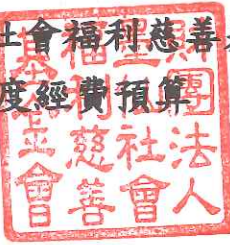 會福利慈善
度經費預算
財團法人
社會
福利慈善
基金會